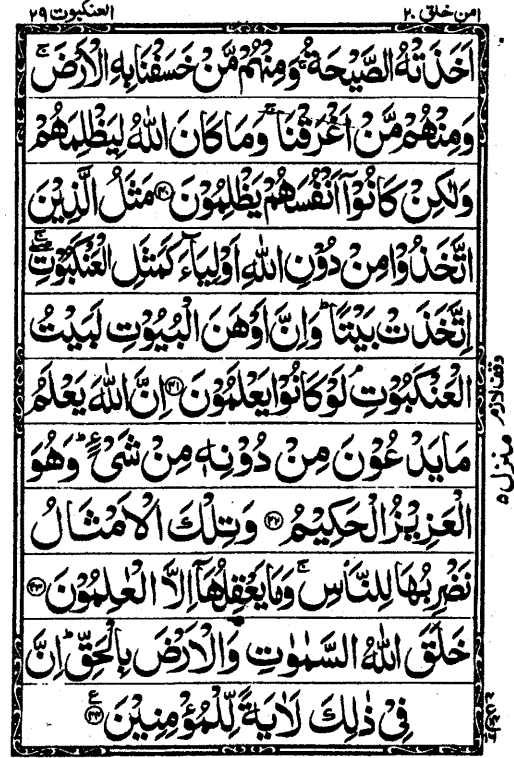 امن خلق ۲۰
العنكبوت ۲۹
اَخَذَتْهُ الصَّيْحَةُ ۚ وَمِنْهُمْ مَّنْ خَسَفْنَا بِهِ الْاَرْضَ ۚ
وَمِنْهُمْ مَّنْ اَغْرَقْنَا ۚ وَمَا كَانَ اللّٰهُ لِيَظْلِمَهُمْ
وَلٰكِنْ كَانُوْۤا اَنْفُسَهُمْ يَظْلِمُوْنَ ﴿۴۰﴾ مَثَلُ الَّذِيْنَ
اتَّخَذُوْا مِنْ دُوْنِ اللّٰهِ اَوْلِيَآءَ كَمَثَلِ الْعَنْكَبُوْتِ ۚ
اِتَّخَذَتْ بَيْتًا ؕ وَاِنَّ اَوْهَنَ الْبُيُوْتِ لَبَيْتُ
الْعَنْكَبُوْتِ ۘ لَوْ كَانُوْا يَعْلَمُوْنَ ﴿۴۱﴾ اِنَّ اللّٰهَ يَعْلَمُ
مَا يَدْعُوْنَ مِنْ دُوْنِهٖ مِنْ شَیْءٍ ؕ وَهُوَ
الْعَزِيْزُ الْحَكِيْمُ ﴿۴۲﴾ وَتِلْكَ الْاَمْثَالُ
نَضْرِبُهَا لِلنَّاسِ ۚ وَمَا يَعْقِلُهَاۤ اِلَّا الْعٰلِمُوْنَ ﴿۴۳﴾
خَلَقَ اللّٰهُ السَّمٰوٰتِ وَالْاَرْضَ بِالْحَقِّ ؕ اِنَّ
فِیْ ذٰلِكَ لَاٰيَةً لِّلْمُؤْمِنِيْنَ ﴿۴۴﴾ ع
وقف لازم
منزل ۵